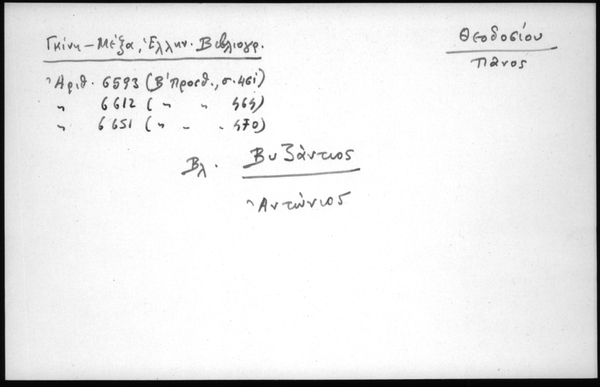 Γκίνη-Μέξα, Ἑλλην. Βιβλιογρ.
Θεοδοσίου
Πάνος
Ἀριθ. 6593 (Β' προσθ., σ. 461)
„ 6612 ( „ „ 464)
„ 6651 ( „ „ „ 470)
Βλ. Βυζάντιος
Ἀντώνιος